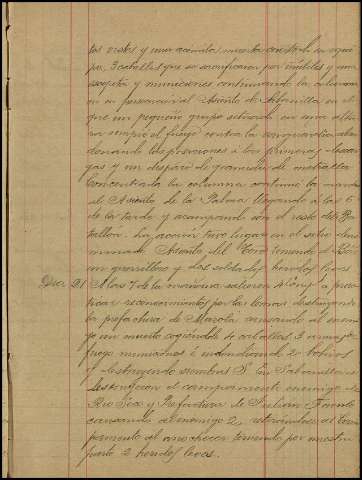 las vistas y una acémila muerta con todo su equi
po, 3 caballos que se sacrificaron por inútiles y una
escopeta y municiones continuando la column
na en persecucion al Asiento de
que un pequeño grupo situado en una altu
ra rompió el fuego contra la vanguardia aban
donando las posiciones á las primeras descar
gas y un disparo de granada de metralla
Concentrada la columna continuó la marcha
al Asiento de la Palma llegando á las 5
de la tarde y acampando con el resto del Ba
tallón. La accion tuvo lugar en el sitio deno
minado Asiento del Toro teniendo el Bon
un guerrillero y dos soldados heridos leves
Dicbre 21 A las 7 de la mañana salieron 4 Comps a prac
ticar reconocimientos por la loma destruyendo
la prefectura de Marota causando al enemi
go un muerto cogiéndole 4 caballos 3 armas de
fuego municiones é incendiando 20 bohios
y destruyendo siembras
destruyeron el campamento enemigo de
Rio Seco y Prefectura de Julian
causando al enemigo 2, retirándose al Cam
pamento al anochecer teniendo por nuestra
parte 2 heridos leves.